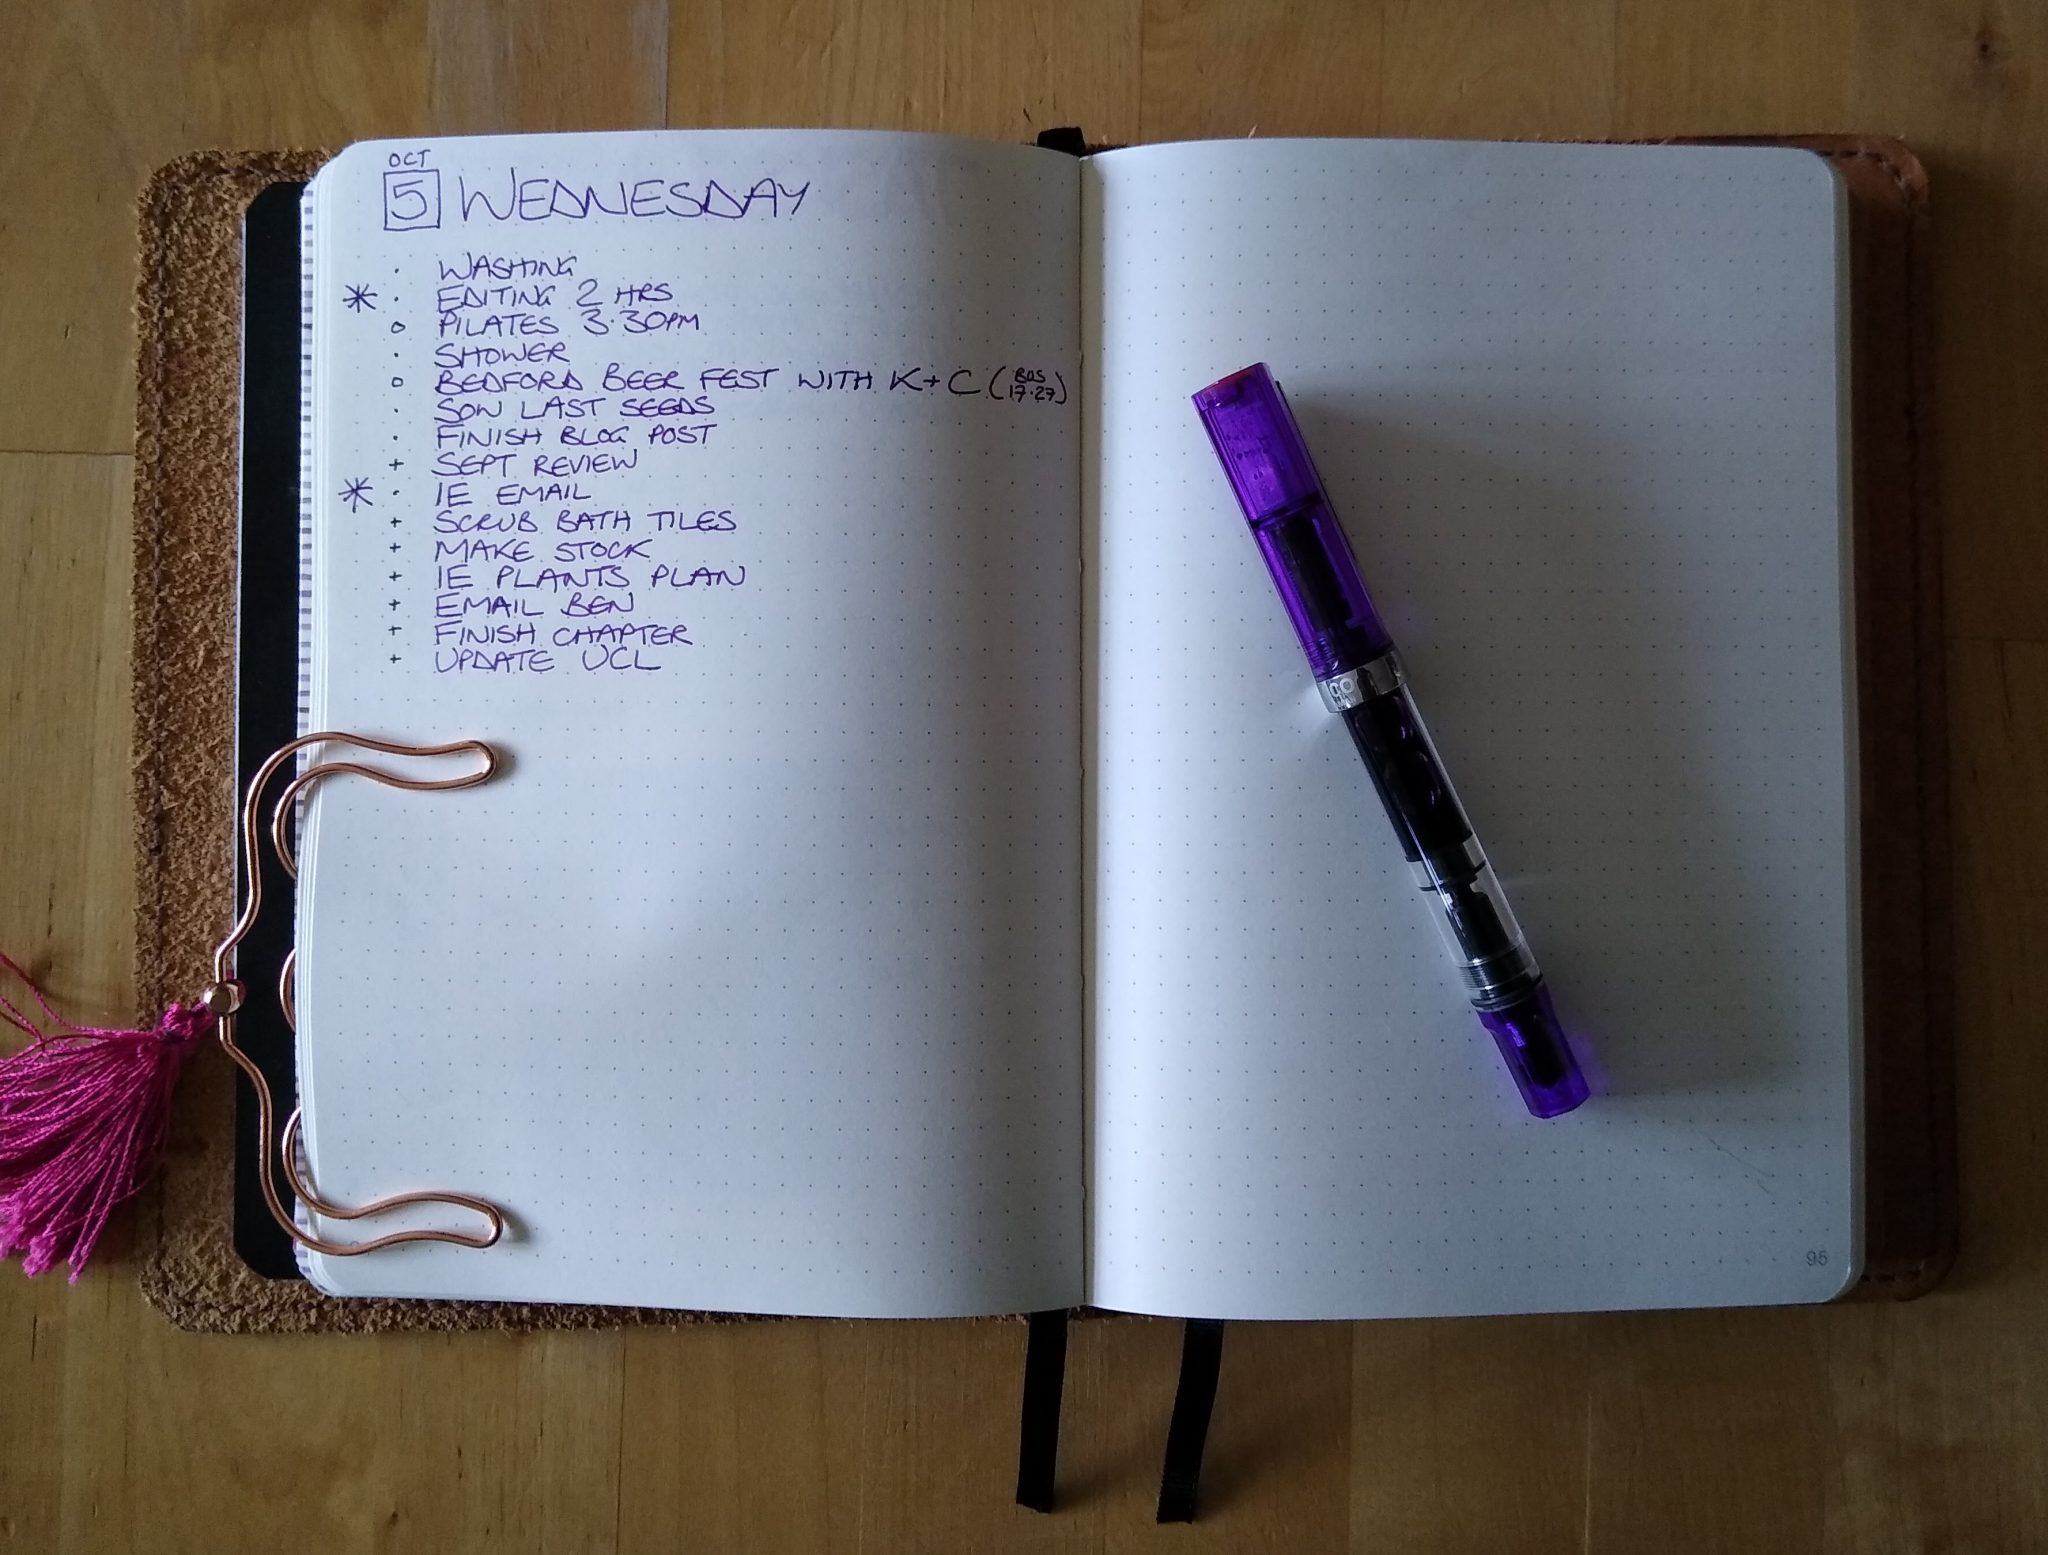 OCT
5 WEDNESDAY
· WASHING
* · EDITING 2 HRS
o PILATES 3·30PM
· SHOWER
o BEDFORD BEER FEST WITH K+C (BUS 17·27)
· SOW LAST SEEDS
· FINISH BLOG POST
+ SEPT REVIEW
* · IE EMAIL
+ SCRUB BATH TILES
+ MAKE STOCK
+ IE PLANTS PLAN
+ EMAIL BEN
+ FINISH CHAPTER
+ UPDATE UCL
CO
95